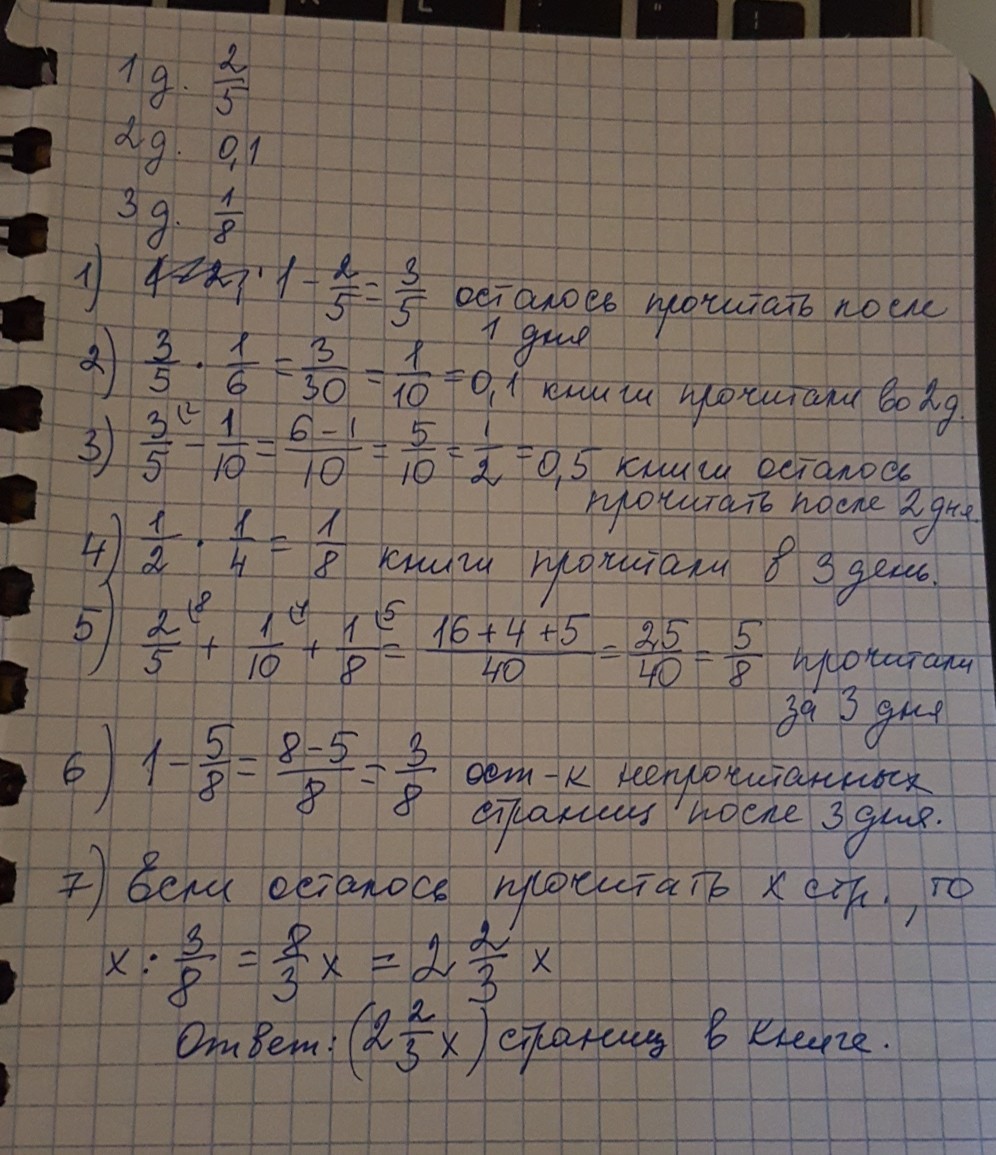 1 д. 2/5
2 д. 0,1
3 д. 1/8
1) 1 - 2/5 = 3/5 осталось прочитать после
1 дня
2) 3/5 · 1/6 = 3/30 = 1/10 = 0,1 книги прочитали во 2 д.
3) 3/5 (2 - 1/10 = 6 - 1/10 = 5/10 = 1/2 = 0,5 книги осталось
прочитать после 2 дня.
4) 1/2 · 1/4 = 1/8 книги прочитали в 3 день.
5) 2/5 (8 + 1/10 (4 + 1/8 (5 = 16 + 4 + 5/40 = 25/40 = 5/8 прочитали
за 3 дня
6) 1 - 5/8 = 8 - 5/8 = 3/8 ост-к непрочитанных
страниц после 3 дня.
7) Если осталось прочитать x стр., то
x : 3/8 = 8/3 x = 2 2/3 x
Ответ: (2 2/3 x) страниц в книге.